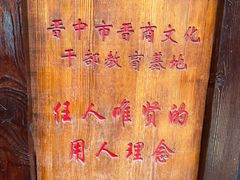 晋中市晋商文化
干部教育基地
任人唯贤的
用人理念